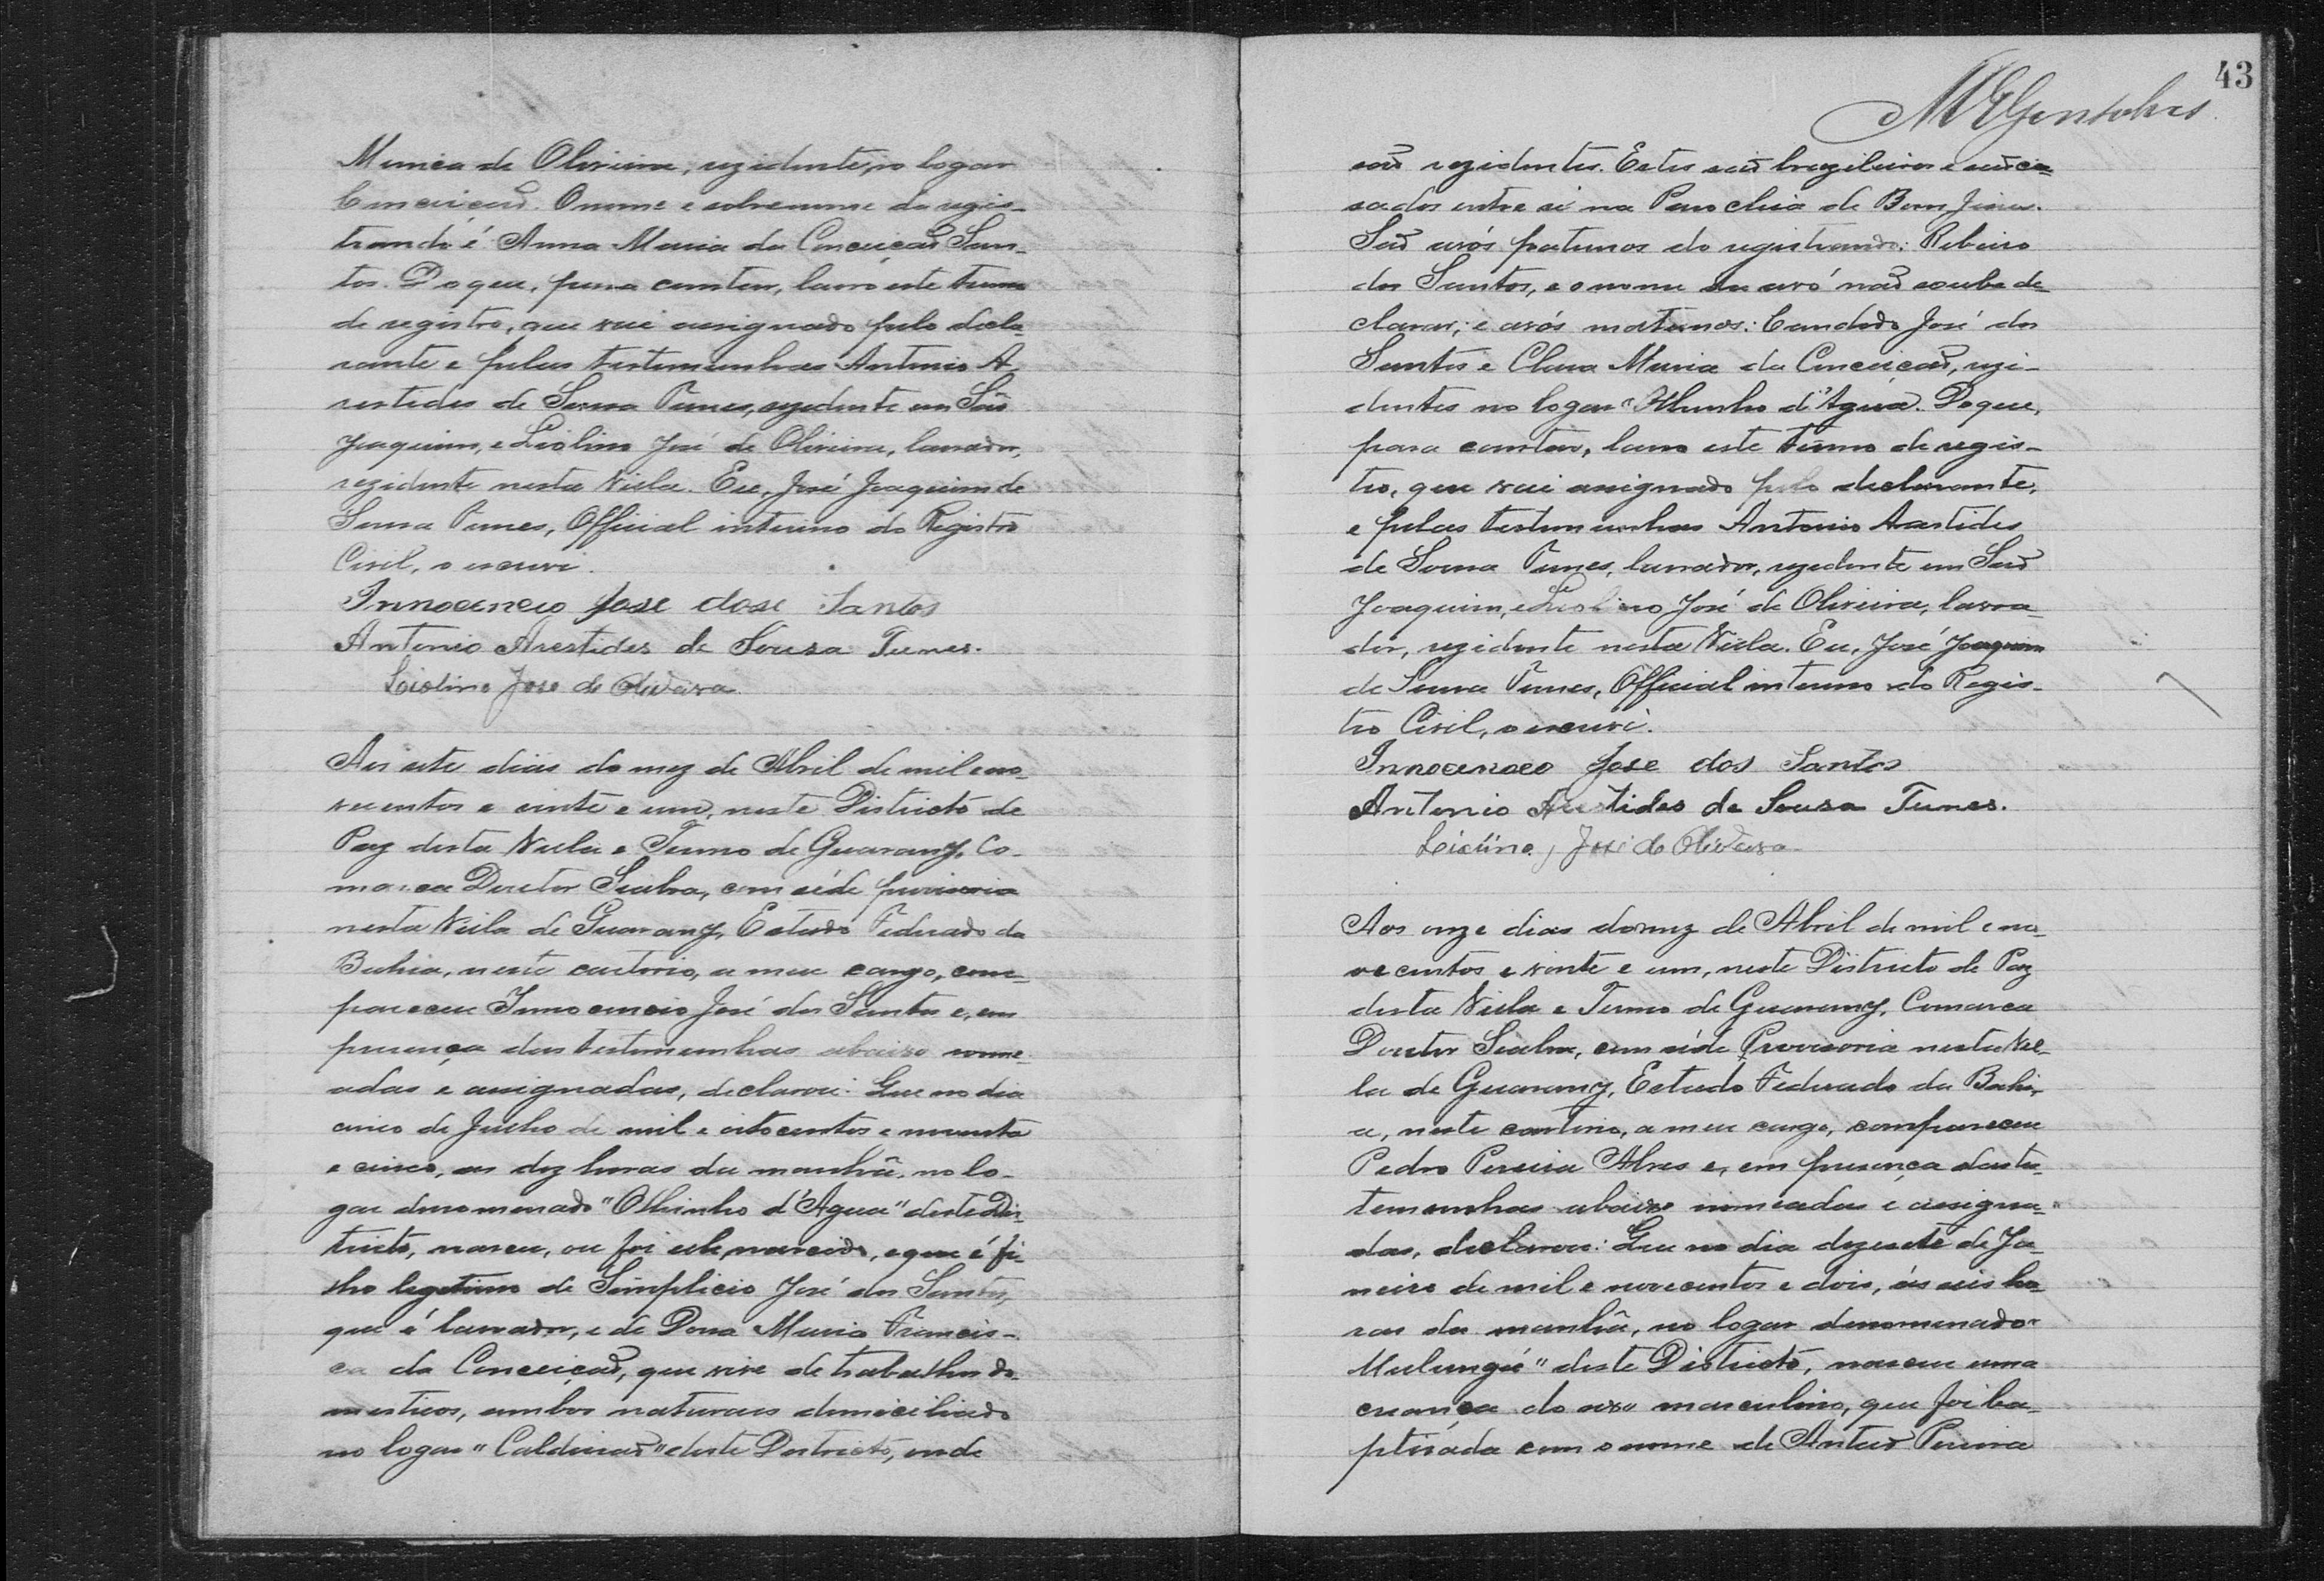 Munica de Oliveira, rezidente, no logar
Conceiçaõ. O nome e sobrenome do regis-
trando é Anna Maria da Conceiçaõ San-
tos. Do que, para constar, lavro este termo
de registro, que vai assignado pelo decla-
rante e pelas testemunhas Antonio A-
restedes de Sousa Tunes, rezidente em Saõ
Joaquim, e Liolino José de Oliveira, lavrador,
rezidente nesta Villa. Eu, José Joaquim de
Sousa Tunes, Official interino do Registro
Civil, o escrevi.
Innocencio Jose dose Santos
Antonio Arestides de Sousa Tunes.
Liolino Jose de Oliveira
Aos sete dias do mez de Abril de mil e no-
vecentos e vinte e um, neste Districto de
Paz desta Villa e Termo de Guarany, Co-
marca Doutor Seabra, com séde provisoria
nesta Villa de Guarany, Estado Federado da
Bahia, neste cartorio, a meu cargo, com-
pareceu Innocencio José dos Santos e, em
presença das testemunhas abaixo nome-
adas e assignadas, declarou: Que no dia
cinco de Julho de mil e oitocentos e noventa
e cinco, as dez horas da manhã, no lo-
gar denomenado "Olhinho d'Agua" deste Dis-
tricto, nasceu, ou foi elle, nascido, e que é fi-
lho legitimo de Simplicio José dos Santos,
que é lavrador, e de Dona Maria Francis-
ca da Conceiçaõ, que vive de trabalhos do-
mesticos, ambos naturaes domiciliado
no logar "Caldeiraõ" deste Districto, onde
43
saõ rezidentes. Estes saõ brazileiros e saõ ca-
sados entre si na Parochia de Bom Jesus.
Saõ avós paternos do registrando: Ribeiro
dos Santos, e o nome da avó naõ soube de-
clarar; e avós maternos: Candido José dos
Santos e Clara Maria da Conceiçaõ, rezi-
dentes no logar "Olhinho d'Agua. Do que,
para constar, lavro este termo de regis-
tro, que vai assignado pelo declarante,
e pelas testemunhas Antonio Arastides
de Sousa Tunes, lavrador, rezidente em Saõ
Joaquim, e Liolino José de Oliveira, lavra-
dor, rezidente nesta Villa. Eu, José Joaquim
de Sousa Tunes, Official interino do Regis-
tro Civil, o escrevi.
Innocencio Jose dos Santos
Antonio Arestides de Sousa Tunes.
Liolino José de Oliveira
Aos onze dias do mez de Abril de mil e no-
vecentos e vinte e um, neste Districto de Paz
desta Villa e Termo de Guarany, Comarca
Doutor Seabra, com séde Provisoria nesta Vil-
la de Guarany, Estado Federado da Bahi-
a, neste cartorio, a meu cargo, compareceu
Pedro Pereira Alves e, em presença das tes-
temunhas abaixo nomeadas e assigna-
das, declarou: Que no dia dezesete de Ja-
neiro de mil e novecentos e dois, ás seis ho-
ras da manhã, no logar denomenado "
Mulungú" deste Districto, nasceu uma
criança do sexo masculino, que foi ba-
ptisada com o nome de Antaõ Pereira